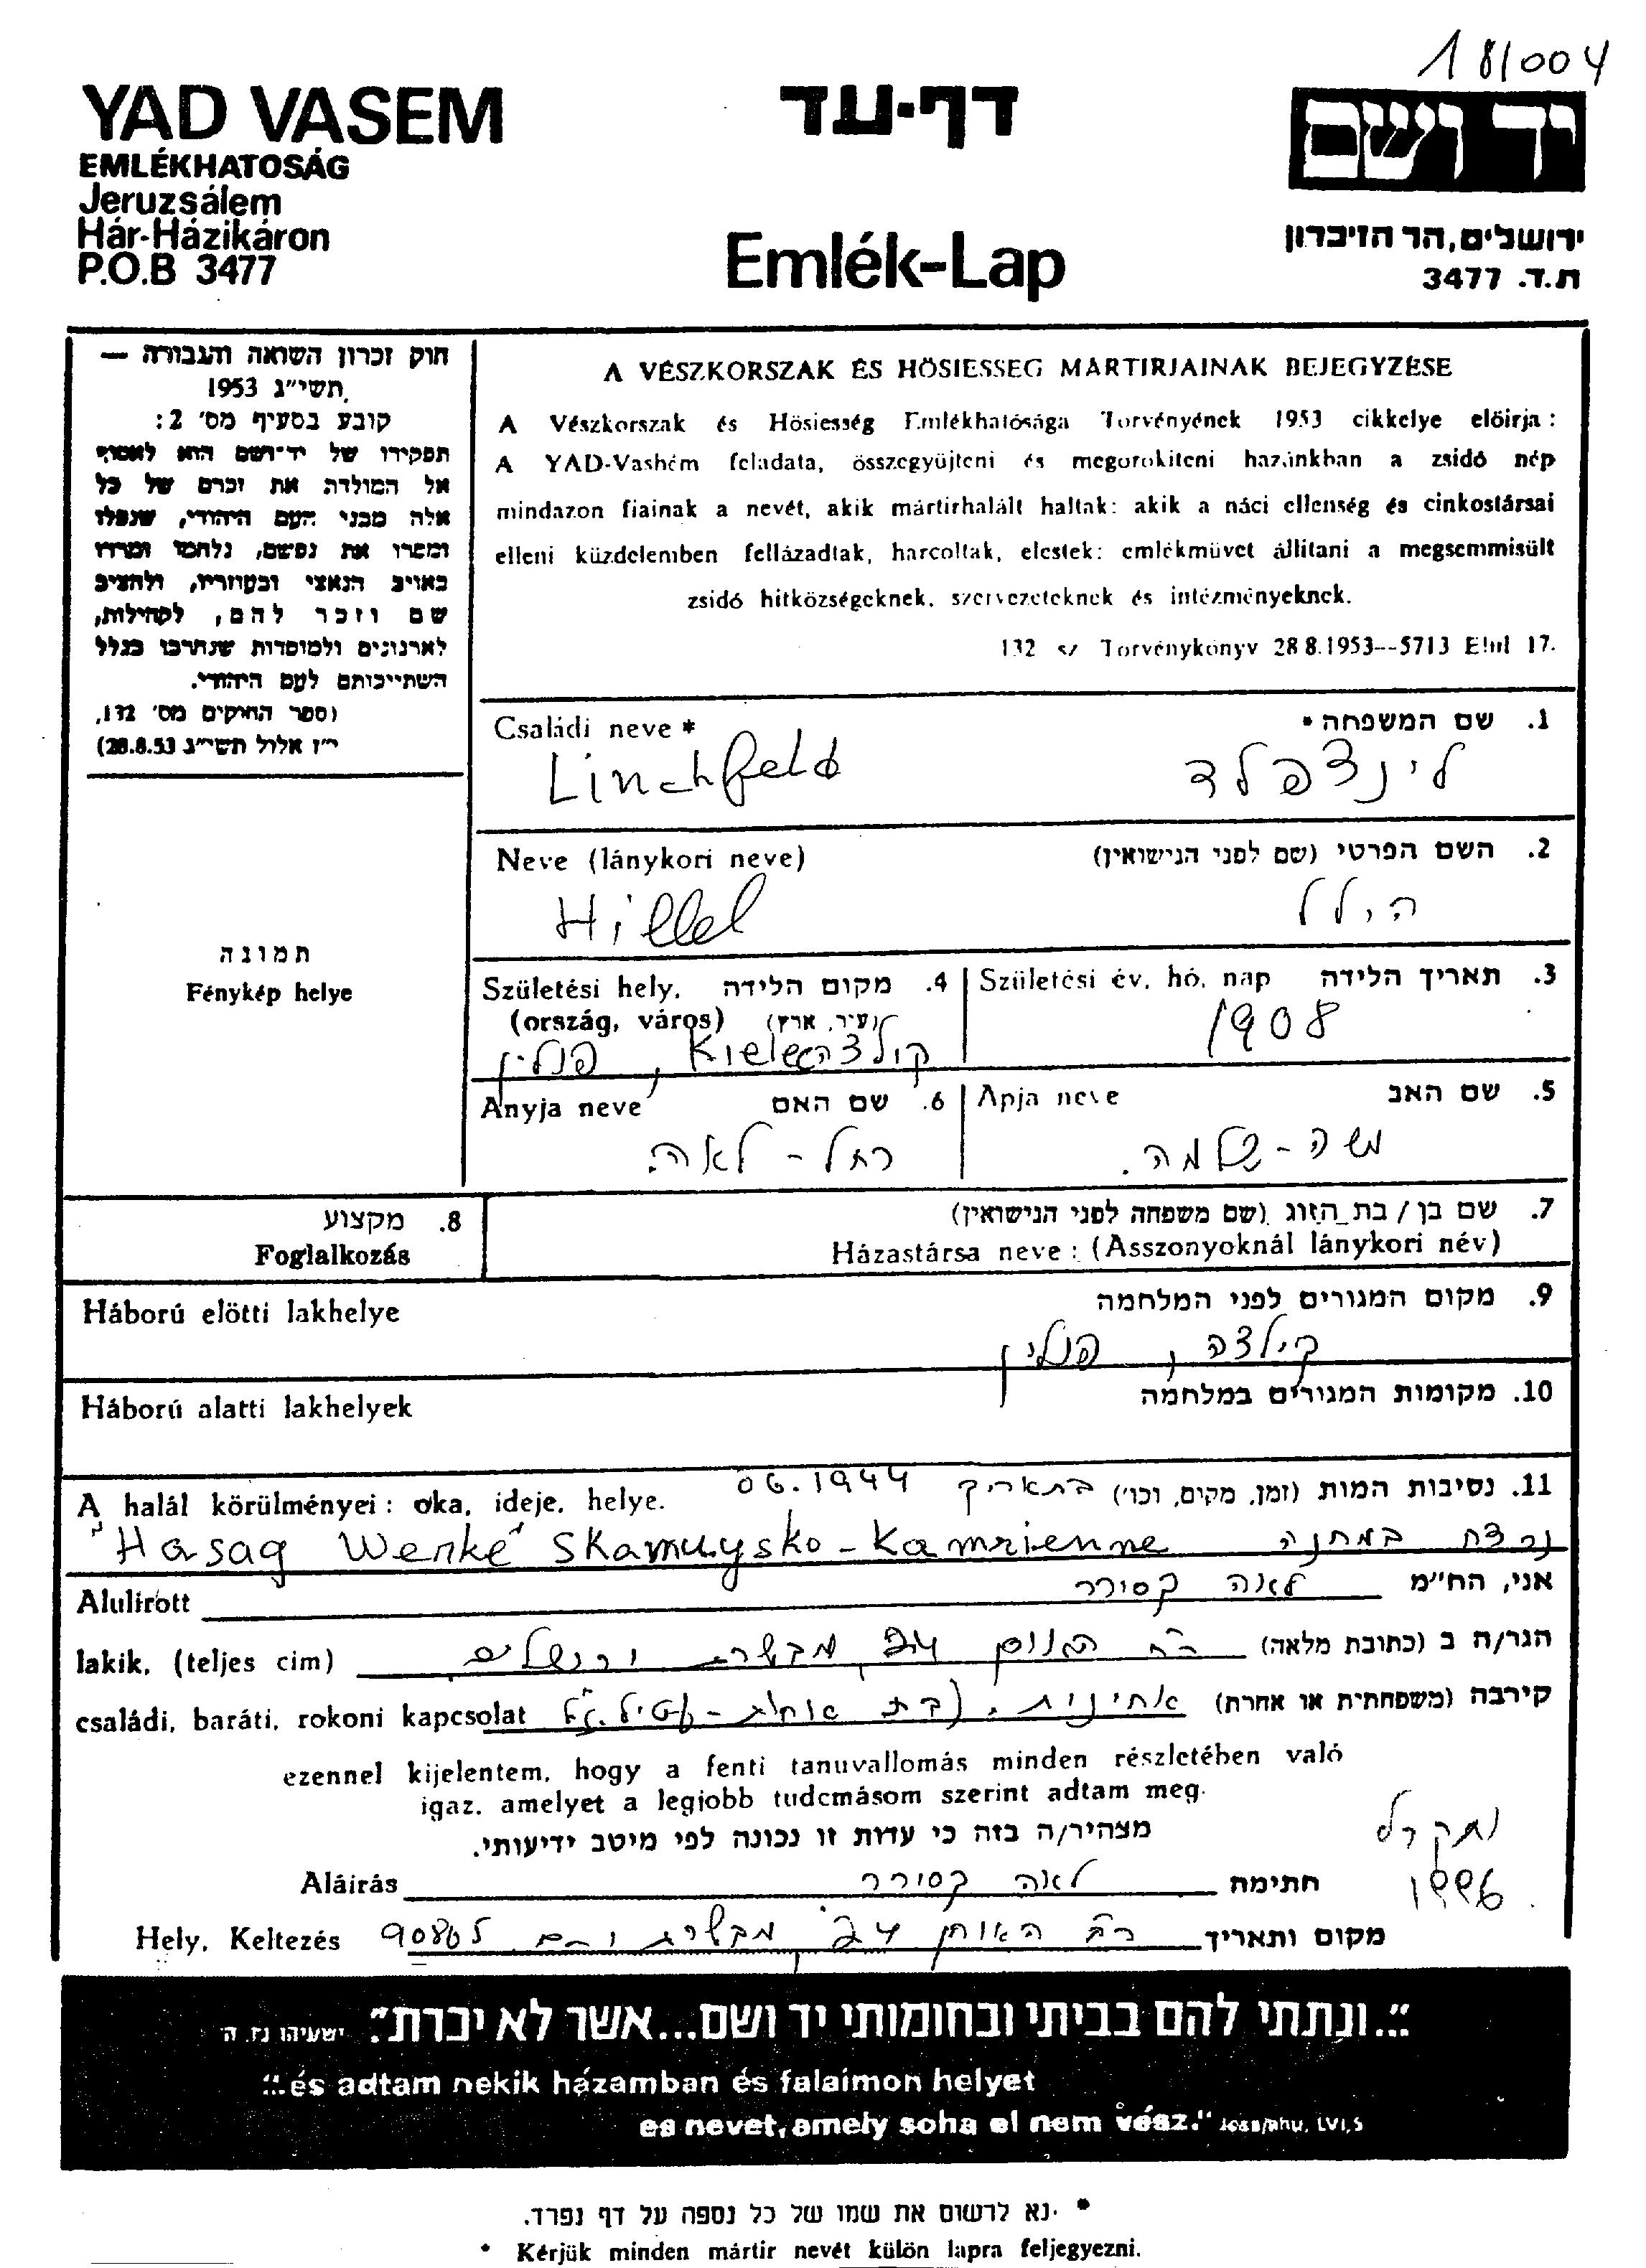 181004
YAD VASEM
EMLÉKHATOSÁG
Jeruzsálem
Hár-Házikáron
P.O.B 3477
דף-עד
Emlék-Lap
יד ושם
ירושלים, הר הזיכרון
ת.ד. 3477
חוק זכרון השואה והגבורה —
תשי״ג 1953
קובע בסעיף מס׳ 2:
תפקידו של יד־ושם הוא לאסוף
אל המולדת את זכרם של כל
אלה מבני העם היהודי, שנפלו
ומסרו את נפשם, נלחמו ומרדו
באויב הנאצי ובעוזריו, ולהציב
שם וזכר להם, לקהילות,
לארגונים ולמוסדות שנחרבו בגלל
השתייכותם לעם היהודי.
(ספר החוקים מס׳ 132,
י״ז אלול תשי״ג 28.8.53)
תמונה
Fénykép helye
A VÉSZKORSZAK ÉS HÖSIESSEG MARTIRJAINAK BEJEGYZÉSE
A Vészkorszak és Hösiesség Emlékhatósága Torvényének 1953 cikkelye elöirja:
A YAD-Vashém feladata, összegyüjteni és megorokiteni hazánkban a zsidó nép
mindazon fiainak a nevét, akik mártirhalált haltak: akik a náci ellenség és cinkostársai
elleni küzdelemben fellázadtak, harcoltak, elestek: emlékmüvet állitani a megsemmisült
zsidó hitközségeknek, szervezeteknek és intézményeknek.
132 sz Torvénykönyv 28 8.1953--5713 Elul 17.
Családi neve * 1. שם המשפחה *
Linchfeld לינצפלד
Neve (lánykori neve) 2. השם הפרטי (שם לפני הנישואין)
Hillel הילל
3. תאריך הלידה Születési év, hó, nap
1908
4. מקום הלידה Születési hely,
(עיר, ארץ) (ország, város)
Kielce פולין
5. שם האב Apja neve
משה-שלמה.
6. שם האם Anyja neve
רחל-לאה.
7. שם בן / בת הזוג (שם משפחה לפני הנישואין)
Házastársa neve: (Asszonyoknál lánykori név)
8. מקצוע
Foglalkozás
Háború elötti lakhelye 9. מקום המגורים לפני המלחמה
קילצה, פולין
Háború alatti lakhelyek 10. מקומות המגורים במלחמה
A halál körülményei: oka, ideje, helye. 11. נסיבות המות (זמן, מקום, וכו׳) בתאריך 06.1944
נרצח במחנה "Hasag Werke" Skamuysko-Kamzienne
Alulirott אני, הח״מ לאה קסורר
lakik, (teljes cim) הגר/ה ב (כתובת מלאה) רח 24 מבשרת ירושלים
családi, baráti, rokoni kapcsolat קירבה (משפחתית או אחרת) אחינית. (בת
ezennel kijelentem, hogy a fenti tanuvallomás minden részletében való
igaz, amelyet a legjobb tudcmásom szerint adtam meg.
מצהיר/ה בזה כי עדות זו נכונה לפי מיטב ידיעותי.
נתקבל
1996
Aláirás לאה קסורר חתימה
Hely, Keltezés מקום ותאריך רח 24 מבשרת 90805
"...ונתתי להם בביתי ובחומותי יד ושם...אשר לא יכרת" ישעיהו נו, ה
"..és adtam nekik házamban és falaimon helyet
es nevet, amely soha el nem vész." Jesajahu, LVI,5
* נא לרשום את שמו של כל נספה על דף נפרד.
* Kérjük minden mártir nevét külön lapra feljegyezni.